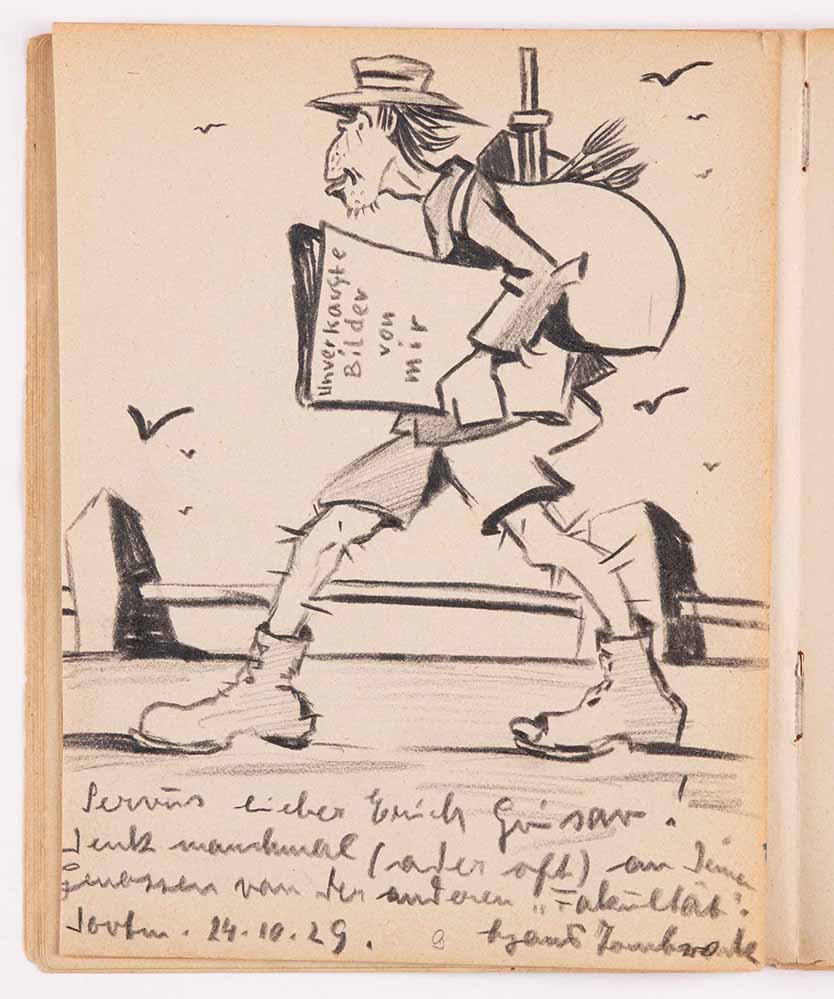 Unverkaufte
Bilder
von
mir
Servus lieber Erich Grisar!
Denk manchmal (oder oft) an Deinen
Genossen von der anderen „Fakultät“.
Dortm. 24.10.29. 9 Hans Tombrock